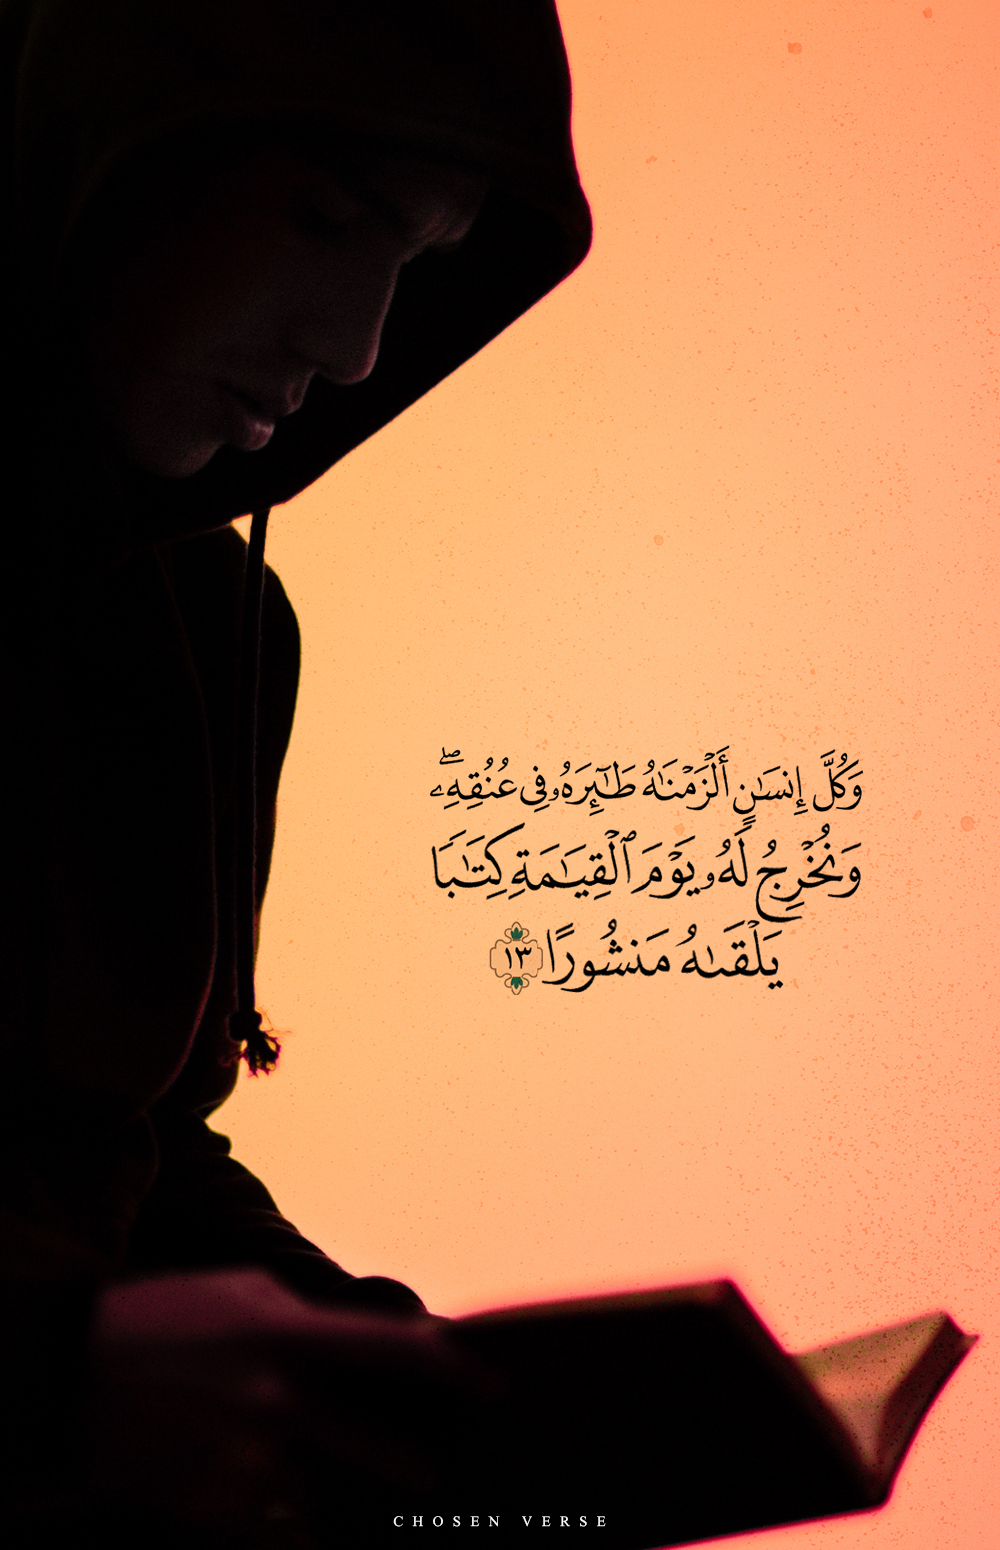 وَكُلَّ إِنسَـٰنٍ أَلْزَمْنَـٰهُ طَـٰٓئِرَهُۥ فِى عُنُقِهِۦ ۖ
وَنُخْرِجُ لَهُۥ يَوْمَ ٱلْقِيَـٰمَةِ كِتَـٰبًا
يَلْقَىٰهُ مَنشُورًا ١٣
CHOSEN VERSE